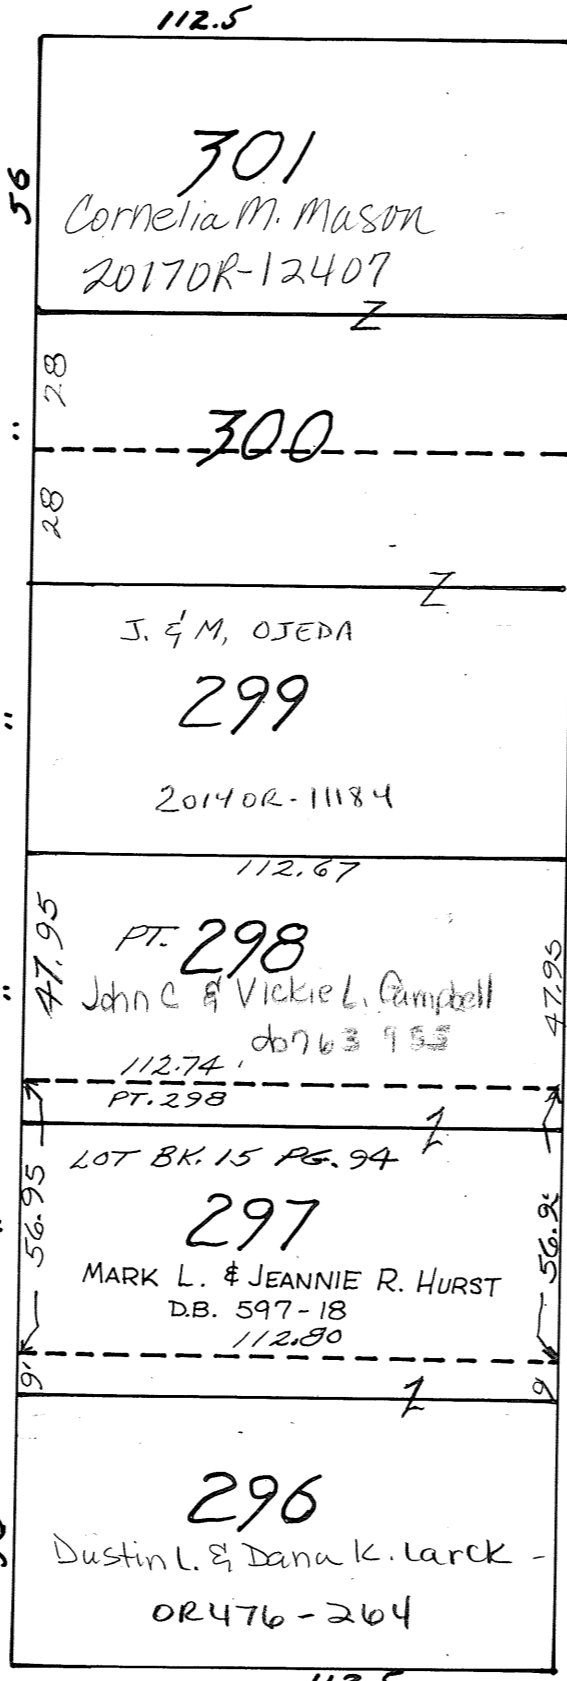 112.5
56
301
Cornelia M. Mason
2017OR-12407
Z
28
"
300
28
Z
J. & M, OJEDA
"
299
2014OR-11184
112.67
47.95
PT. 298
47.95
"
John C & Vickie L. Campbell
db763
112.74
PT. 298
Z
LOT BK. 15 PG. 94
56.95
297
56.9
MARK L. & JEANNIE R. HURST
D.B. 597-18
112.80
9'
9
Z
296
Dustin L. & Dana K. Larck -
OR476-264